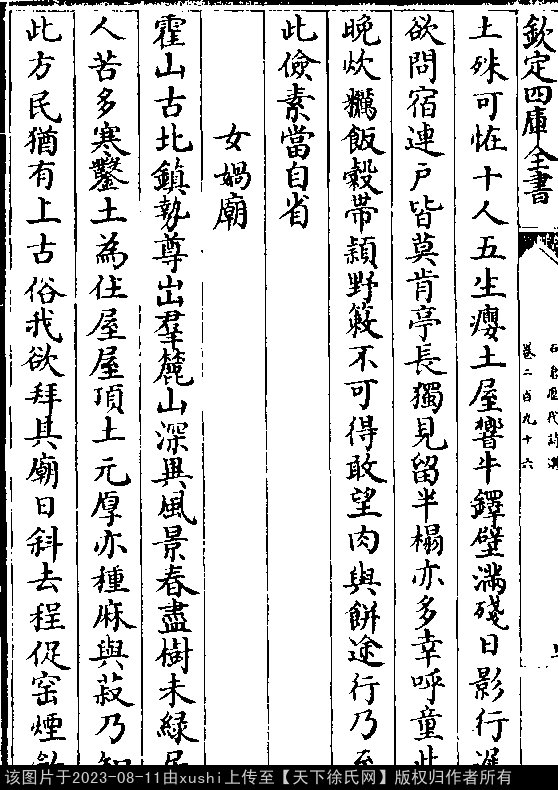 欽定四庫全書
石倉歷代詩選
卷二百九十六
土殊可恠十人五生癭土屋響牛鐸壁滿殘日影行
欲問宿連戶皆莫肯亭長獨見留半榻亦多幸呼童此
晚炊糲飯穀帶穎野簌不可得敢望肉與餅途行乃至
此儉素當自省
女媧廟
霍山古北鎮勢尊出羣麓山深異風景春盡樹未緑居
人苦多寒鑿土為住屋屋頂土元厚亦種麻與菽乃知
此方民猶有上古俗我欲拜其廟日斜去程促窑煙
该图片于2023-08-11由xushi上传至【天下徐氏网】版权归作者所有